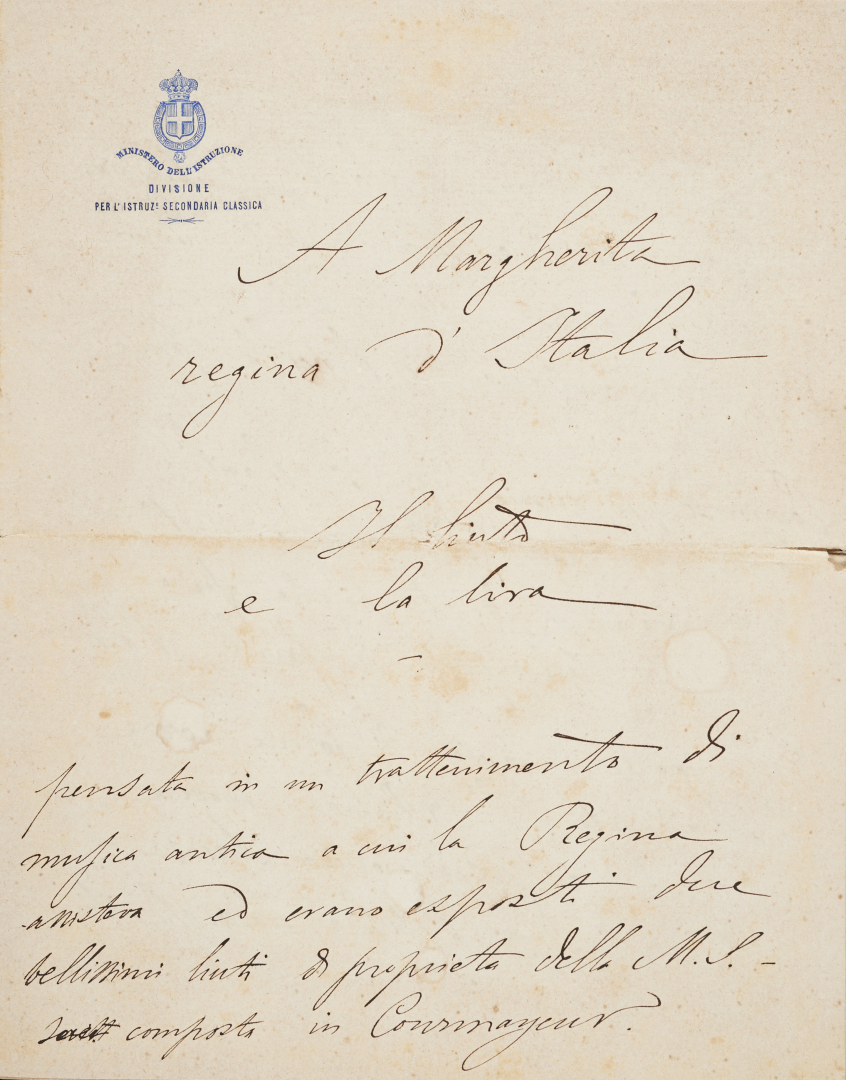 MINISTERO DELL'ISTRUZIONE
DIVISIONE
PER L'ISTRUZE SECONDARIA CLASSICA
A Margherita
regina d'Italia
Il liuto
e la lira
–
pensata in un trattenimento di
musica antica a cui la Regina
assisteva ed erano esposti due
bellissimi liuti di proprietà della M. S. –
composta in Courmayeur.